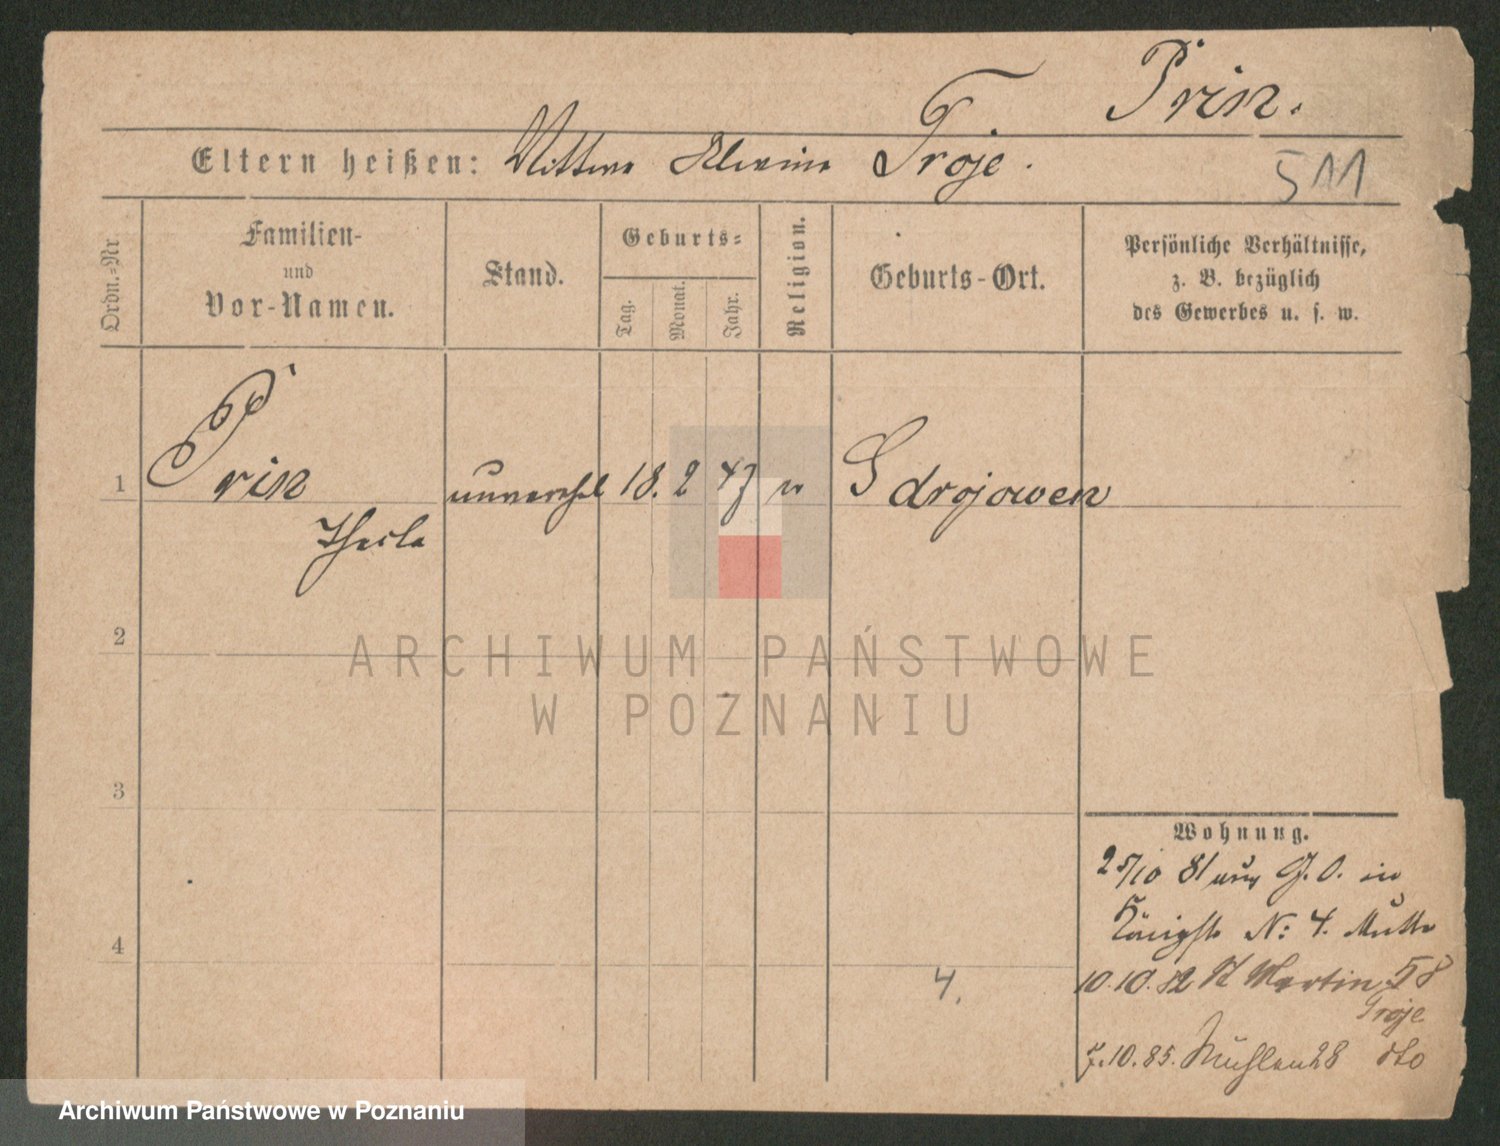 Prin.
Eltern heißen: Troje.
511
Ordn.=Nr
Familien-
und
Vor-Namen.
Stand.
Geburts=
Tag.
Monat.
Jahr.
Religion.
Geburts-Ort.
Persönliche Verhältnisse,
z. B. bezüglich
des Gewerbes u. s. w.
1
Prin unverehel 18. 2 47 Sdrojowen
Thecla
2
ARCHIWUM PAŃSTWOWE
W POZNANIU
3
Wohnung.
25/10 81 aus G. O. in
Königstr N: 4. Mutter
4
10.10.82 St Martin 58
Troje
4.
7.10.85. Mühlen 28 dto
Archiwum Państwowe w Poznaniu